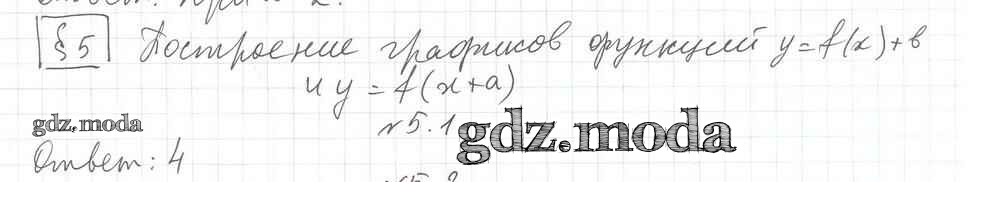 §5 Построение графиков функций y=f(x)+в
и y=f(x+a)
№5.1
gdz.moda
gdz.moda
Ответ: 4